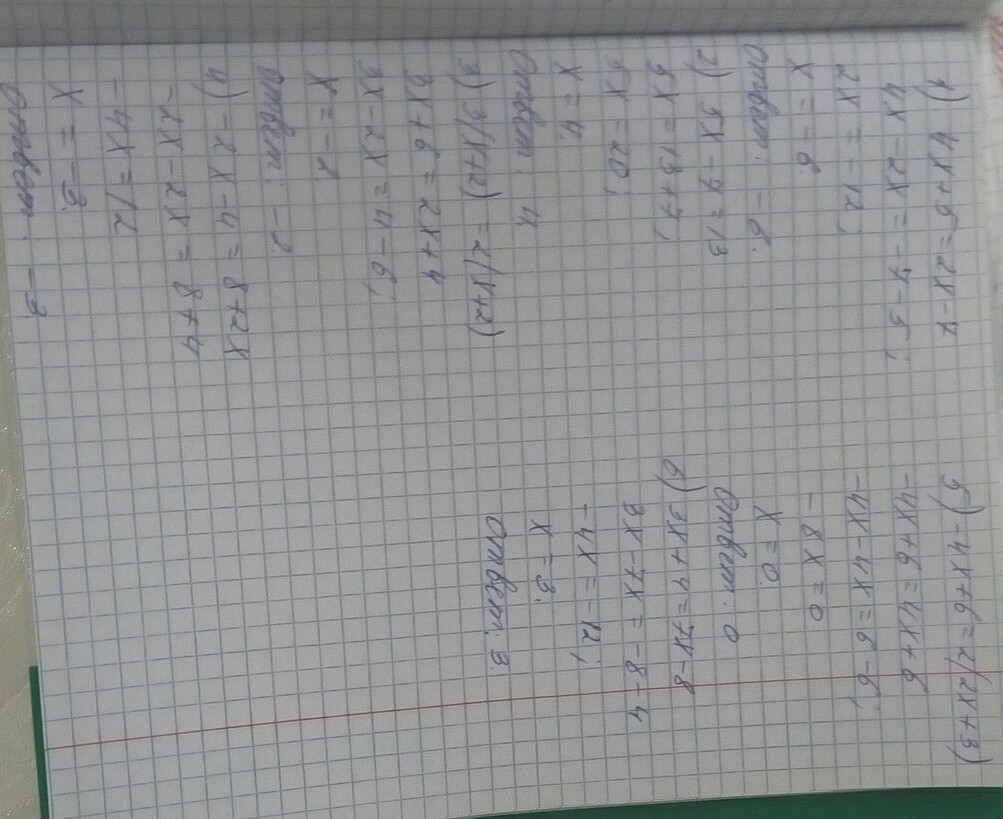 1) 4x+5=2x-7
4x-2x=-7-5;
2x=-12;
x=-6.
Ответ: -6.
2) 5x-7=13
5x=13+7;
5x=20;
x=4.
Ответ: 4
3) 3(x+2)=2(x+2)
3x+6=2x+4
3x-2x=4-6;
x=-2.
Ответ: -2.
4) -2x-4=8+2x
-2x-2x=8+4
-4x=12
x=-3.
Ответ: -3.
5) -4x+6=2(2x+3)
-4x+6=4x+6
-4x-4x=6-6;
-8x=0
x=0.
Ответ: 0
6) 3x+4=7x-8
3x-7x=-8-4
-4x=-12;
x=3.
Ответ: 3.